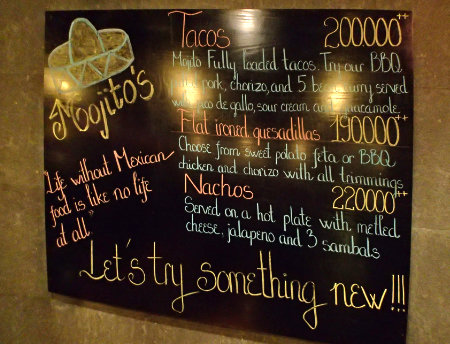 Mojito's
"Life without Mexican
food is like no life
at all"
Tacos 200000++
Mojito Fully loaded tacos. Try our BBQ
pork, chorizo, and 5 bean curry served
with pico de gallo, sour cream and guacamole
Flat ironed quesadillas 190000++
Choose from sweet potato feta or BBQ
chicken and chorizo with all trimmings
Nachos 220000++
Served on a hot plate with melted
cheese, jalapeno and 3 sambals
Let's try something new!!!